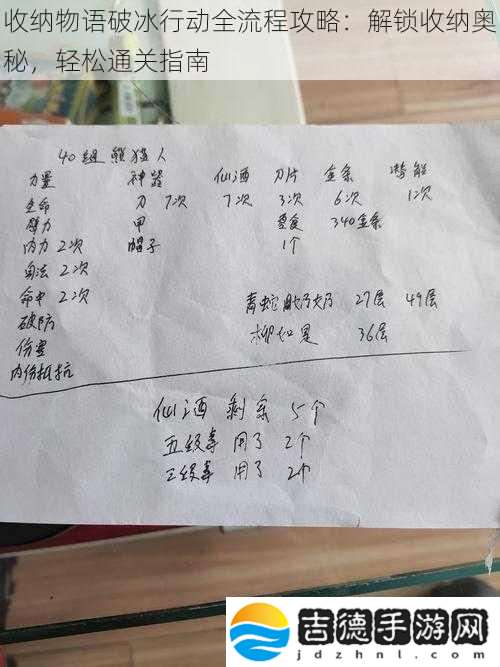 收纳物语破冰行动全流程攻略：解锁收纳奥
秘，轻松通关指南
40组 熊猫人
力量 神器 仙酒 刀片 金条 潜能
生命 刀 7次 7次 3次 6次 1次
臂力 甲 零食 340金条
内力 2次 帽子 1个
2次
命中 2次 青蛇 27层 49层
破防 柳如是 36层
伤害
内伤抵抗
仙酒 剩余 5个
五级 用了 2个
三级 用了 2个
吉德手游网
jdzhnl.com